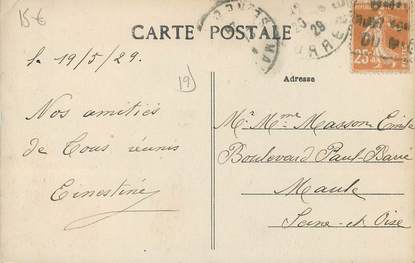 15€
CARTE POSTALE
le 19/5/29.
19
Adresse
25
28
Nos amitiés
de Tous réunis
Ernestine
Mr Mme Masson Emile
Boulevard Paul-Barré
Maule
Seine-et-Oise